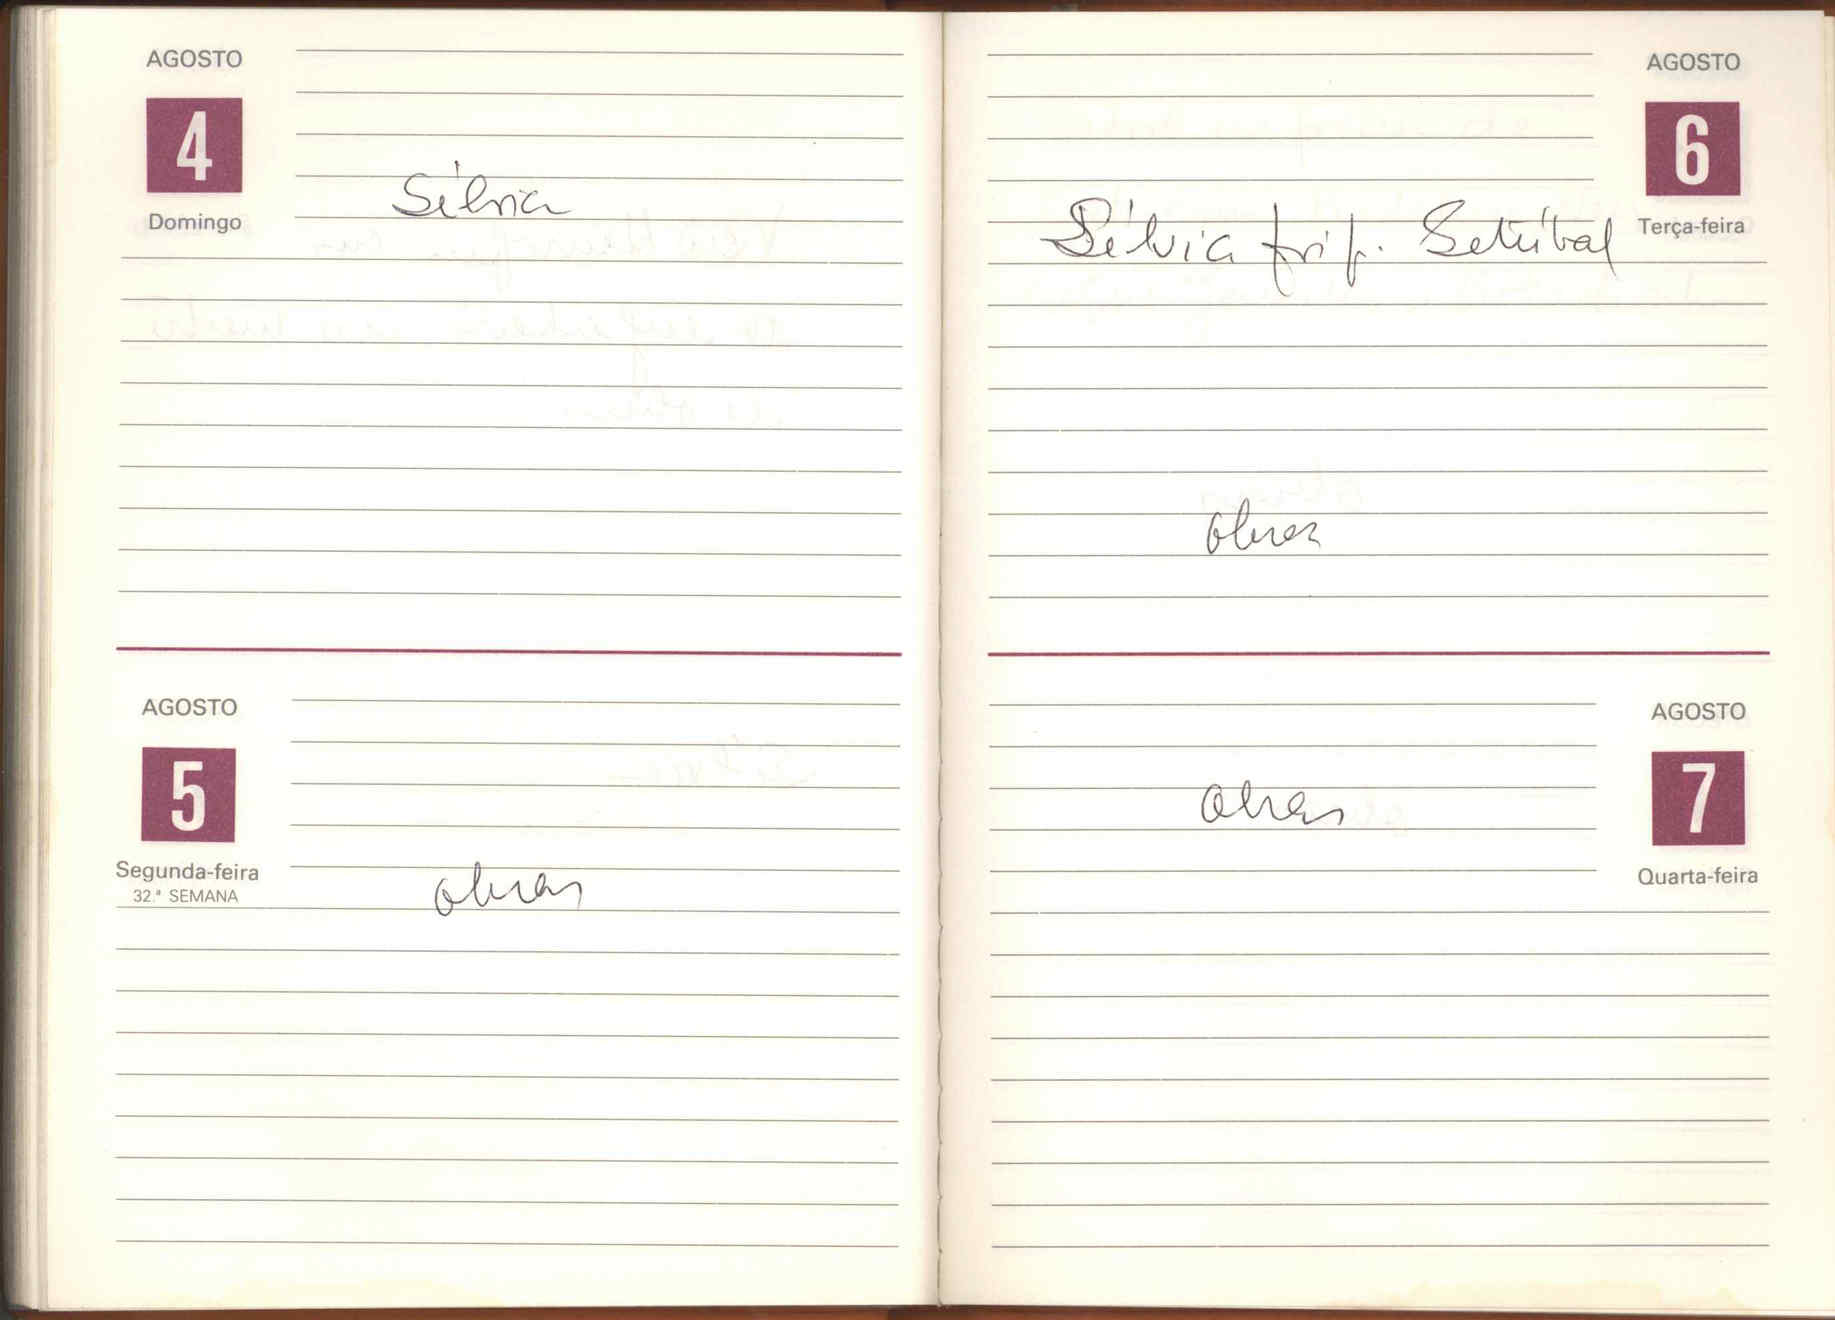 AGOSTO
4
Domingo
Sílvia
AGOSTO
5
Segunda-feira
32.ª SEMANA
obras
AGOSTO
6
Terça-feira
Sílvia Setúbal
obras
AGOSTO
7
Quarta-feira
obras